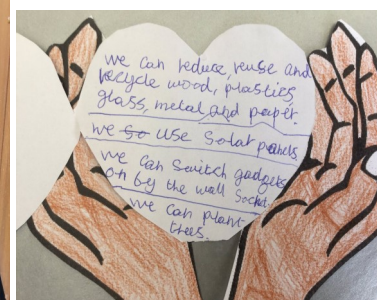 we can reduce, reuse and
recycle wood, plastics,
glass, metal and paper.
we so use solar panels
we can switch gadgets
on by the wall socket.
we can plant
trees.